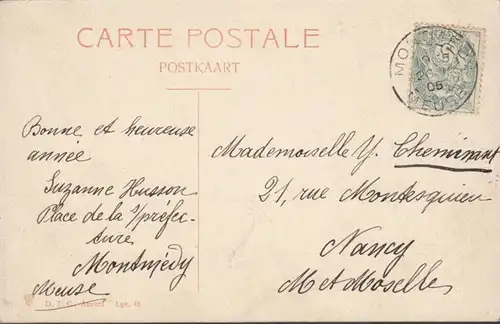 CARTE POSTALE
POSTKAART
MEUSE
05
Bonne et heureuse
année
Suzanne Husson
Place de la s/préfec-
ture
Montmédy
Meuse
Mademoiselle Y. Cheminant
21, rue Montesquieu
Nancy
M et Moselle
Anvers